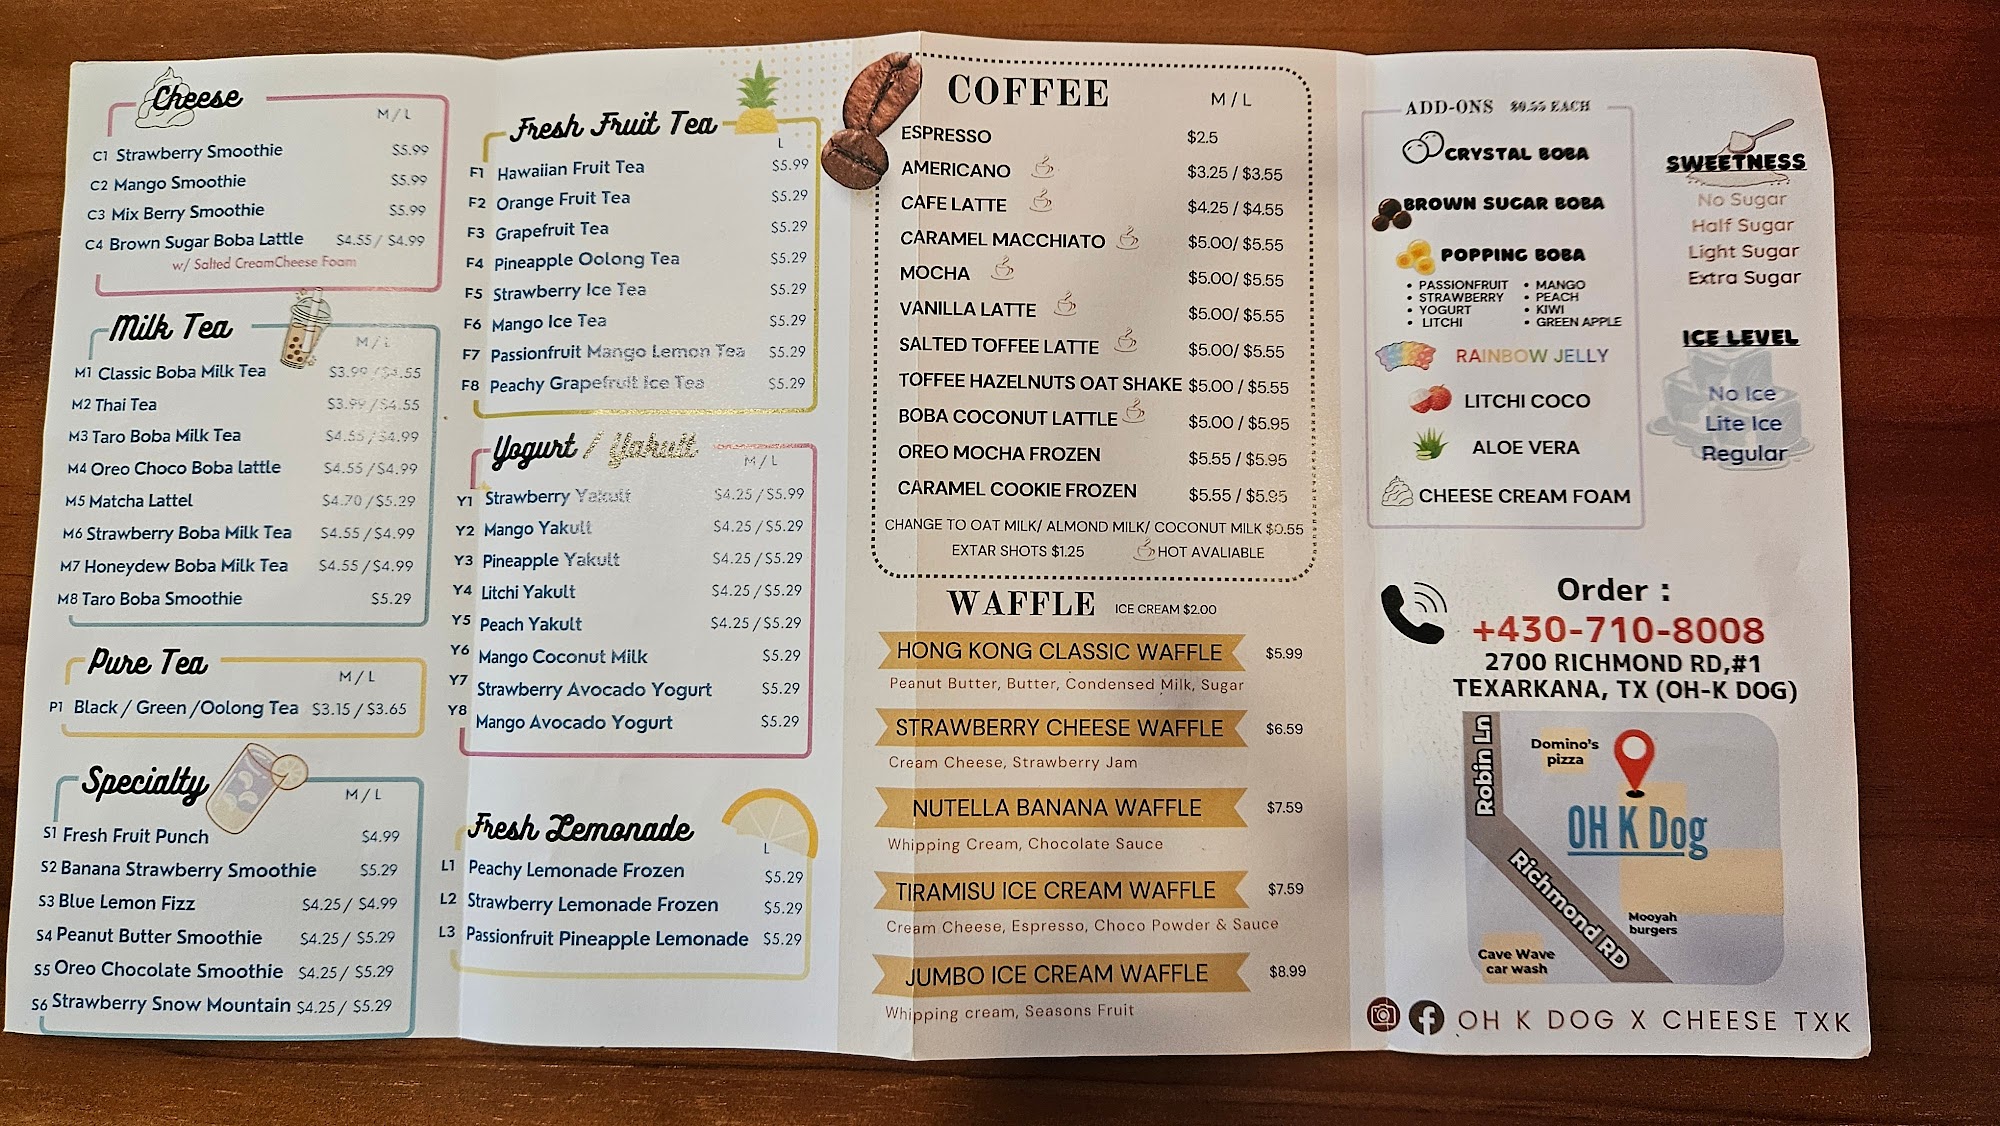 Cheese
M / L
C1 Strawberry Smoothie $5.99
C2 Mango Smoothie $5.99
C3 Mix Berry Smoothie $5.99
C4 Brown Sugar Boba Lattle $4.55 / $4.99
w/ Salted CreamCheese Foam
Milk Tea
M / L
M1 Classic Boba Milk Tea $3.99 / $4.55
M2 Thai Tea $3.99 / $4.55
M3 Taro Boba Milk Tea $4.55 / $4.99
M4 Oreo Choco Boba lattle $4.55 / $4.99
M5 Matcha Lattel $4.70 / $5.29
M6 Strawberry Boba Milk Tea $4.55 / $4.99
M7 Honeydew Boba Milk Tea $4.55 / $4.99
M8 Taro Boba Smoothie $5.29
Pure Tea
M / L
P1 Black / Green /Oolong Tea $3.15 / $3.65
Specialty
M / L
S1 Fresh Fruit Punch $4.99
S2 Banana Strawberry Smoothie $5.29
S3 Blue Lemon Fizz $4.25 / $4.99
S4 Peanut Butter Smoothie $4.25 / $5.29
S5 Oreo Chocolate Smoothie $4.25 / $5.29
S6 Strawberry Snow Mountain $4.25 / $5.29
Fresh Fruit Tea
L
F1 Hawaiian Fruit Tea $5.99
F2 Orange Fruit Tea $5.29
F3 Grapefruit Tea $5.29
F4 Pineapple Oolong Tea $5.29
F5 Strawberry Ice Tea $5.29
F6 Mango Ice Tea $5.29
F7 Passionfruit Mango Lemon Tea $5.29
F8 Peachy Grapefruit Ice Tea $5.29
Yogurt / Yakult
M / L
Y1 Strawberry Yakult $4.25 / $5.99
Y2 Mango Yakult $4.25 / $5.29
Y3 Pineapple Yakult $4.25 / $5.29
Y4 Litchi Yakult $4.25 / $5.29
Y5 Peach Yakult $4.25 / $5.29
Y6 Mango Coconut Milk $5.29
Y7 Strawberry Avocado Yogurt $5.29
Y8 Mango Avocado Yogurt $5.29
Fresh Lemonade
L
L1 Peachy Lemonade Frozen $5.29
L2 Strawberry Lemonade Frozen $5.29
L3 Passionfruit Pineapple Lemonade $5.29
COFFEE
M / L
ESPRESSO $2.5
AMERICANO $3.25 / $3.55
CAFE LATTE $4.25 / $4.55
CARAMEL MACCHIATO $5.00/ $5.55
MOCHA $5.00/ $5.55
VANILLA LATTE $5.00/ $5.55
SALTED TOFFEE LATTE $5.00/ $5.55
TOFFEE HAZELNUTS OAT SHAKE $5.00 / $5.55
BOBA COCONUT LATTLE $5.00 / $5.95
OREO MOCHA FROZEN $5.55 / $5.95
CARAMEL COOKIE FROZEN $5.55 / $5.95
CHANGE TO OAT MILK/ ALMOND MILK/ COCONUT MILK $0.55
EXTAR SHOTS $1.25 HOT AVALIABLE
WAFFLE ICE CREAM $2.00
HONG KONG CLASSIC WAFFLE $5.99
Peanut Butter, Butter, Condensed Milk, Sugar
STRAWBERRY CHEESE WAFFLE $6.59
Cream Cheese, Strawberry Jam
NUTELLA BANANA WAFFLE $7.59
Whipping Cream, Chocolate Sauce
TIRAMISU ICE CREAM WAFFLE $7.59
Cream Cheese, Espresso, Choco Powder & Sauce
JUMBO ICE CREAM WAFFLE $8.99
Whipping cream, Seasons Fruit
ADD-ONS $0.55 EACH
CRYSTAL BOBA
BROWN SUGAR BOBA
POPPING BOBA
• PASSIONFRUIT • MANGO
• STRAWBERRY • PEACH
• YOGURT • KIWI
• LITCHI • GREEN APPLE
RAINBOW JELLY
LITCHI COCO
ALOE VERA
CHEESE CREAM FOAM
SWEETNESS
No Sugar
Half Sugar
Light Sugar
Extra Sugar
ICE LEVEL
No Ice
Lite Ice
Regular
Order :
+430-710-8008
2700 RICHMOND RD,#1
TEXARKANA, TX (OH-K DOG)
Robin Ln
Domino's
pizza
OH K Dog
Richmond RD
Mooyah
burgers
Cave Wave
car wash
OH K DOG X CHEESE TXK